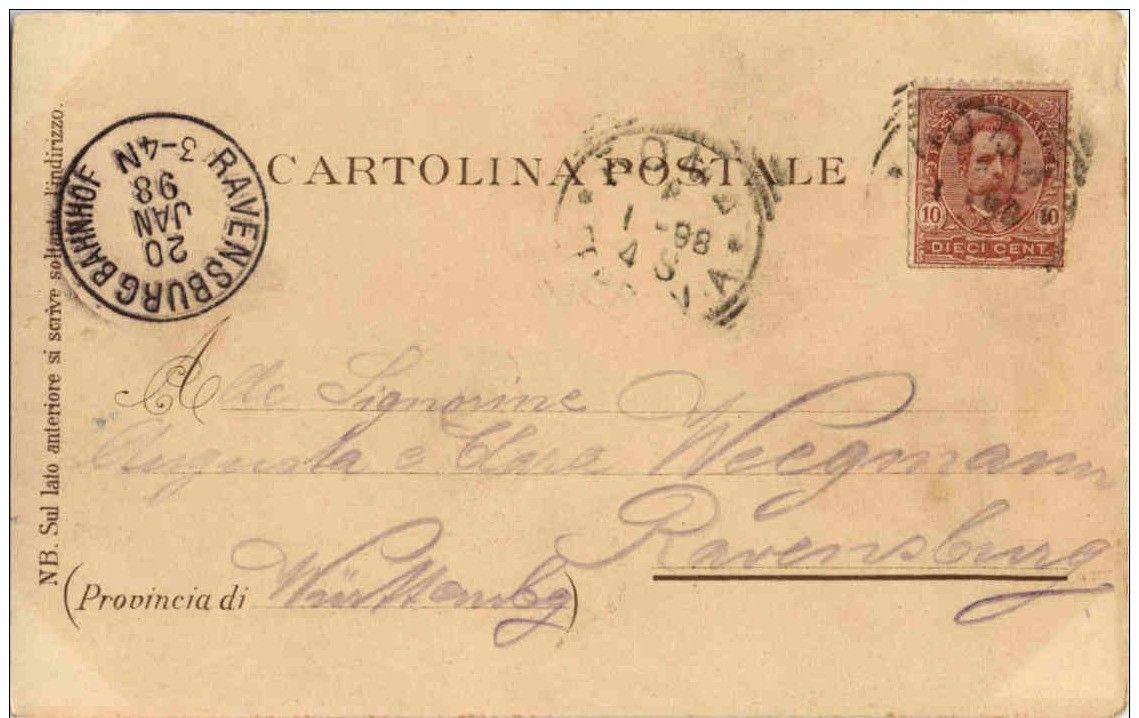 CARTOLINA POSTALE
NB. Sul lato anteriore si scrive soltanto l'indirizzo.
RAVENSBURG BAHNHOF
20
JAN
98
3-4N
1 - 98
4 S
10 10
DIECI CENT.
Alle Signorine
Augusta e Clara Weegmann
Ravensburg
(Provincia di Württembg)